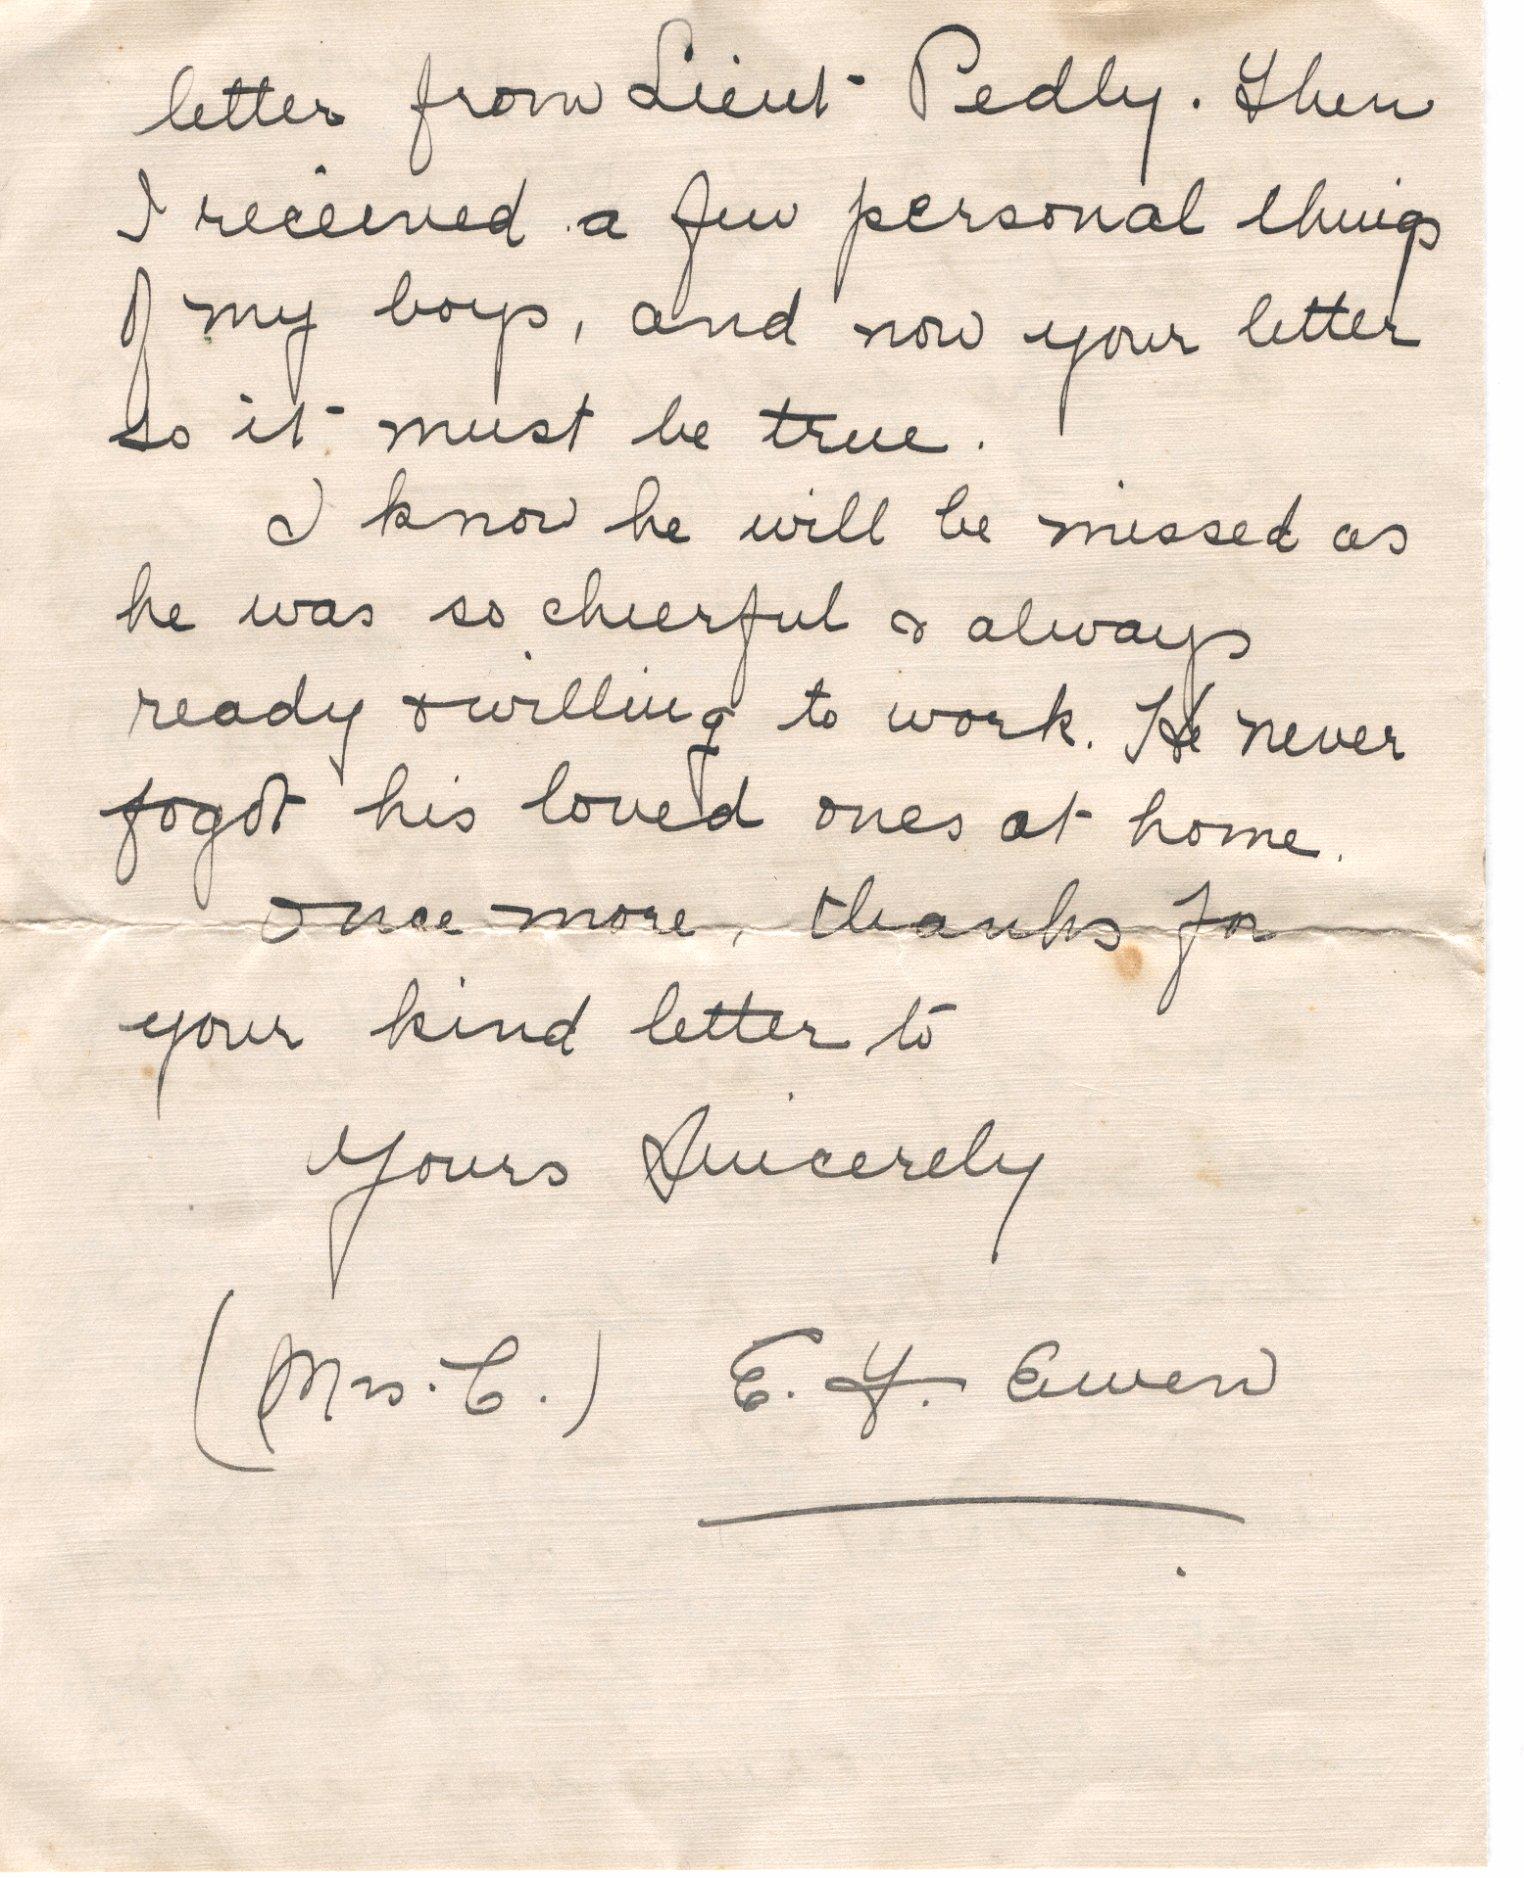 letter from Lieut Pedly. Then
I received a few personal things
of my boys, and now your letter
so it must be true.
I know he will be missed as
he was so cheerful & always
ready & willing to work. He never
fogot his loved ones at home.
Once more, thanks for
your kind letter to
Yours Sincerely
(Mrs. C.) E. Y. Ewen